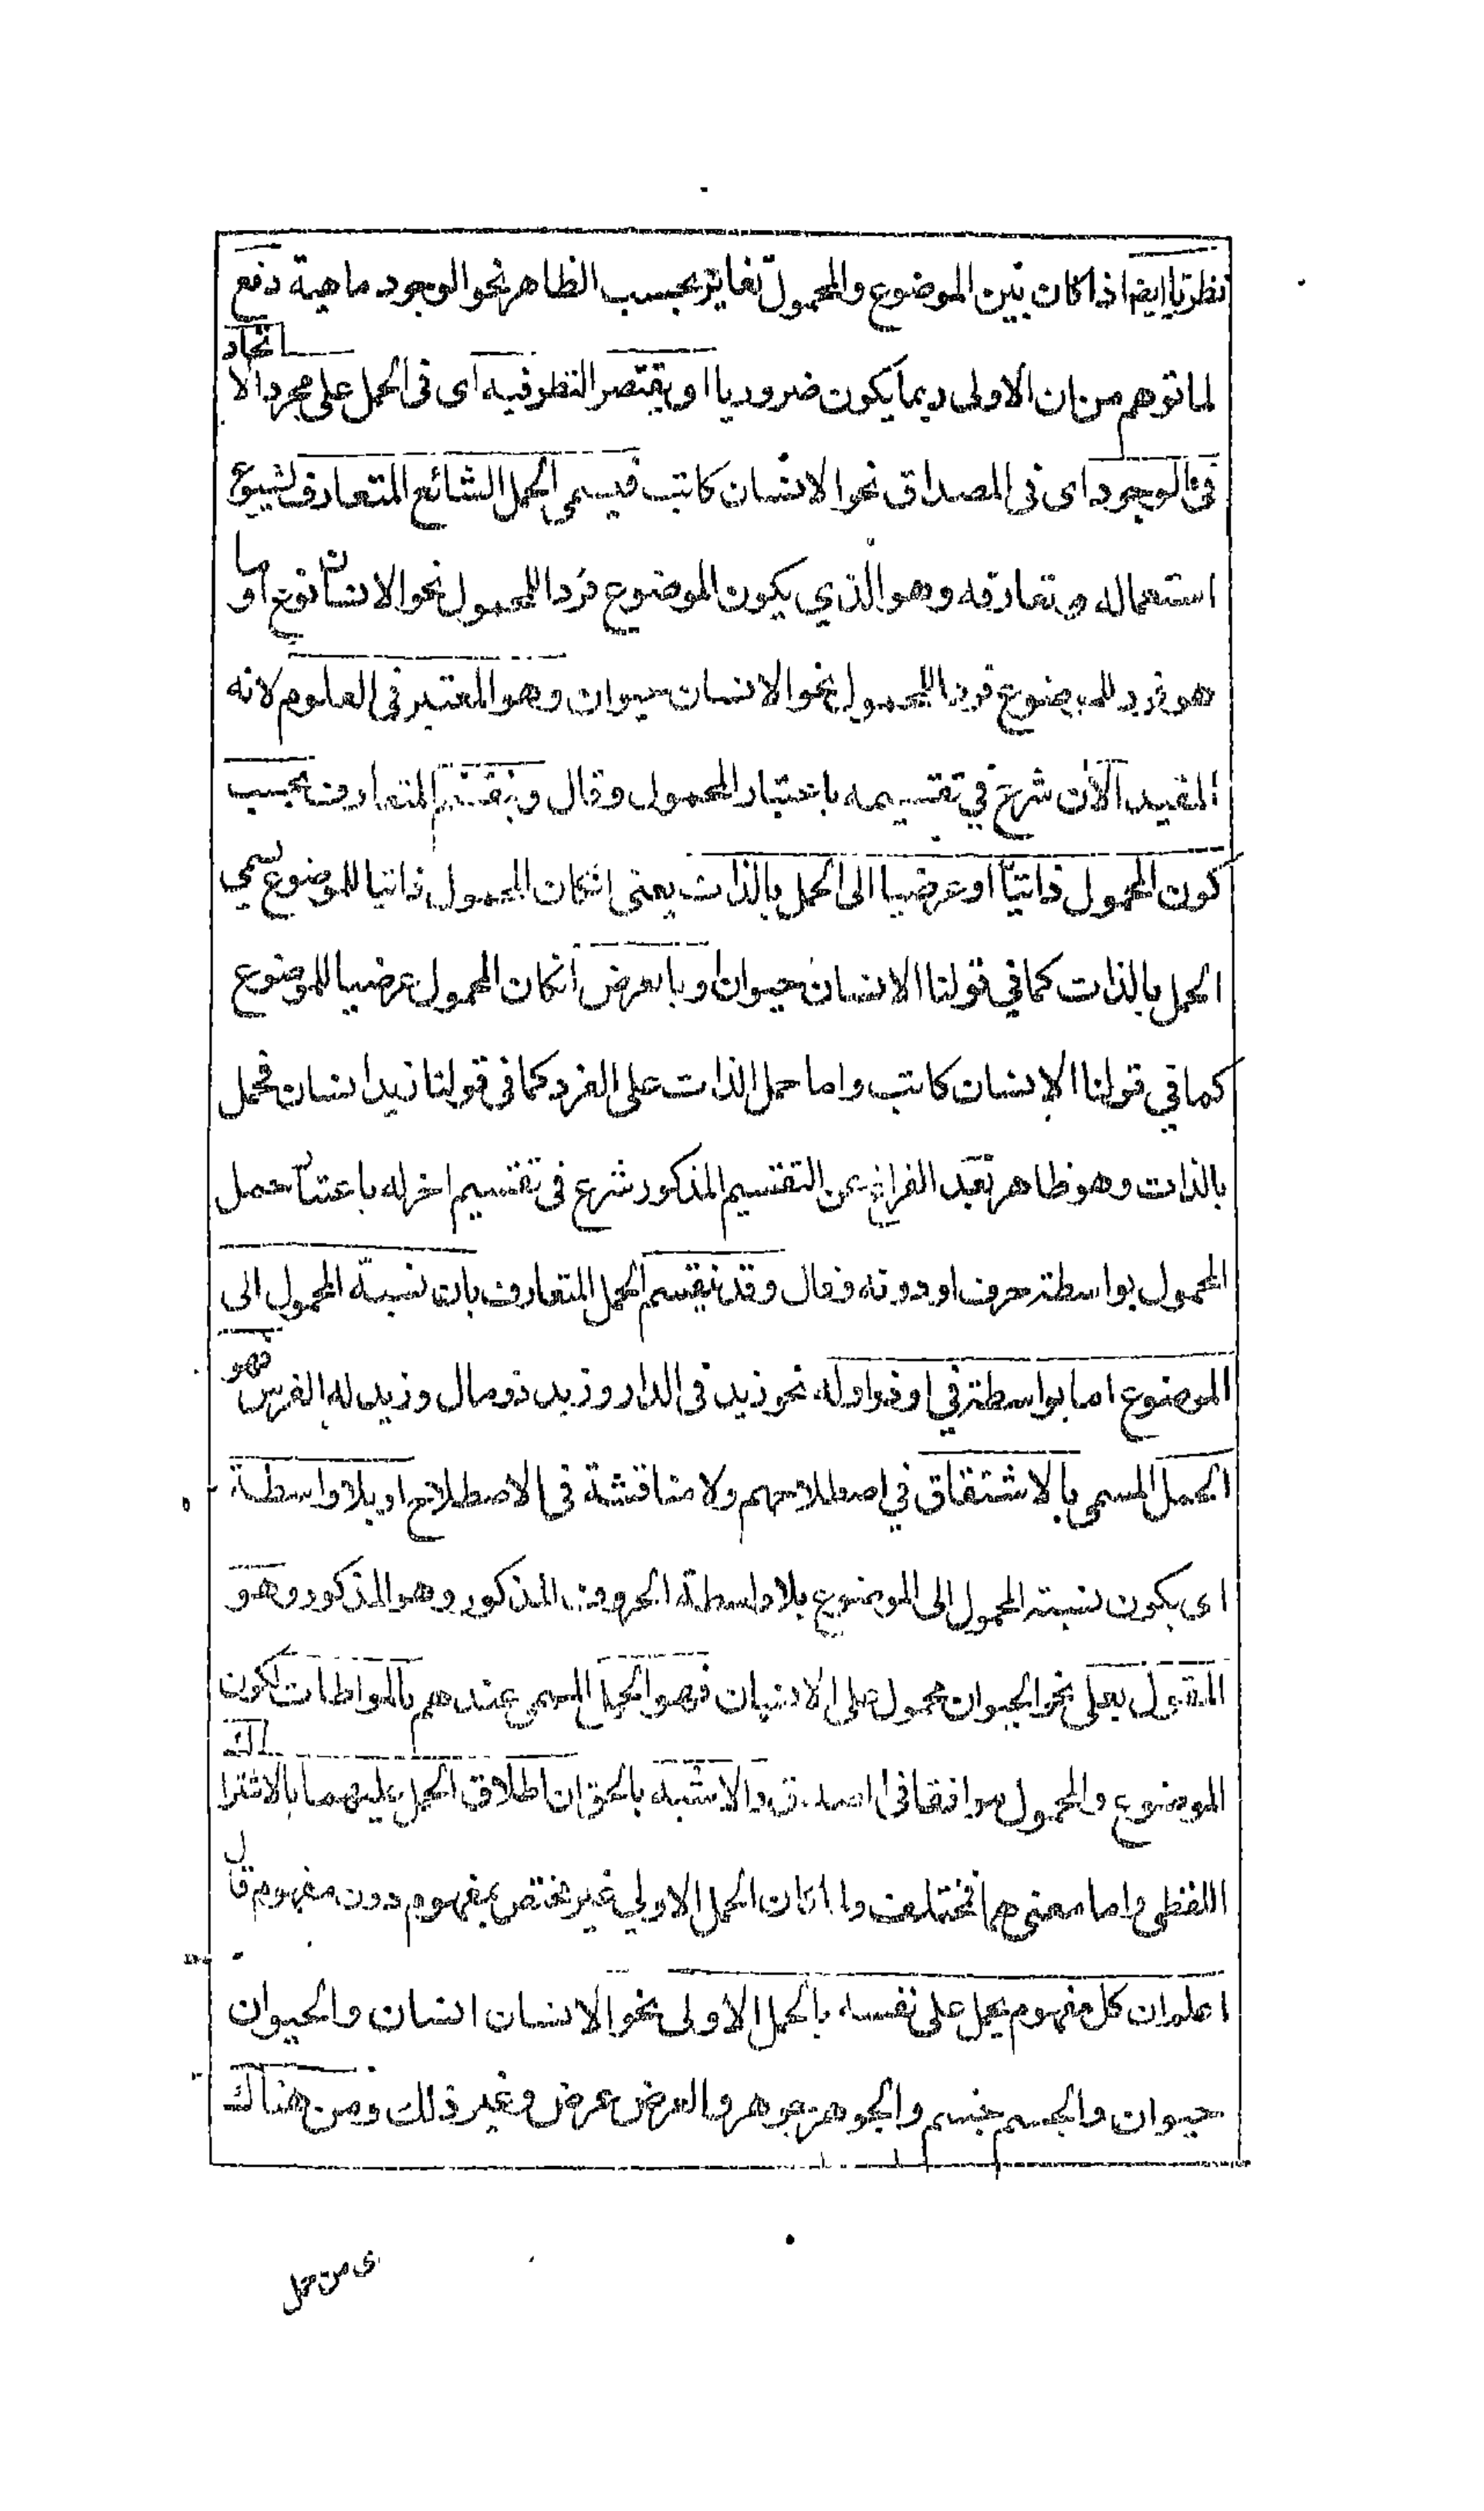 نظريا ايضا اذا كان بين الموضوع والمحمول تغاير بحسب الظاهر نحو الوجود ماهية دفع
لما توهم من ان الاولى ربما يكون ضروريا او يقتصر النظر فيه اى فى الحمل على مجرد الاتحاد
فى الوجود اى فى المصداق نحو الانسان كاتب فيسمى الحمل الشائع المتعارف لشيوع
استعماله وتعارفه وهو الذي يكون الموضوع فردا للمحمول نحو الانسان نوع او ما
هو فرد للموضوع فردا للمحمول نحو الانسان حيوان وهو المعتبر فى العلوم لانه
المفيد الآن شرع في تقسيمه باعتبار المحمول وقال وينقسم المتعارف بحسب
كون المحمول ذاتيا او عرضيا الى الحمل بالذات يعنى انكان المحمول ذاتيا للموضوع سمي
الحمل بالذات كما في قولنا الانسان حيوان او بالعرض انكان المحمول عرضيا للموضوع
كما في قولنا الانسان كاتب واما حمل الذات على الفرد كما فى قولنا زيد انسان فحمل
بالذات وهو ظاهر بعد الفراغ عن التقسيم المذكور شرع فى تقسيم اخر له باعتبار حمل
المحمول بواسطة حرف او دونه وقال وقد ينقسم الحمل المتعارف بان نسبة المحمول الى
الموضوع اما بواسطة في او ذو او له نحو زيد فى الدار وزيد ذو مال وزيد له الفرس فهو
الحمل المسمى بالاشتقاق في اصطلاحهم ولا مناقشة فى الاصطلاح او بلا واسطة
اى يكون نسبة المحمول الى الموضوع بلا واسطة الحروف المذكور وهو المذكور وهو
المقول بعلى نحو الحيوان محمول على الانسان فهو الحمل المسمى عندهم بالمواطات لكون
الموضوع والمحمول موافقا فى الصدق والاشبه بالحق ان اطلاق الحمل عليهما بالاشتراك
اللفظى واما معنى هما فمختلف ولما كان الحمل الاولي غير مختص بمفهوم دون مفهوم قال
اعلم ان كل مفهوم يحمل على نفسه بالحمل الاولى نحو الانسان انسان والحيوان
حيوان والجسم جسم والجوهر جوهر والعرض عرض وغير ذلك ومن هناك
ى من حمل